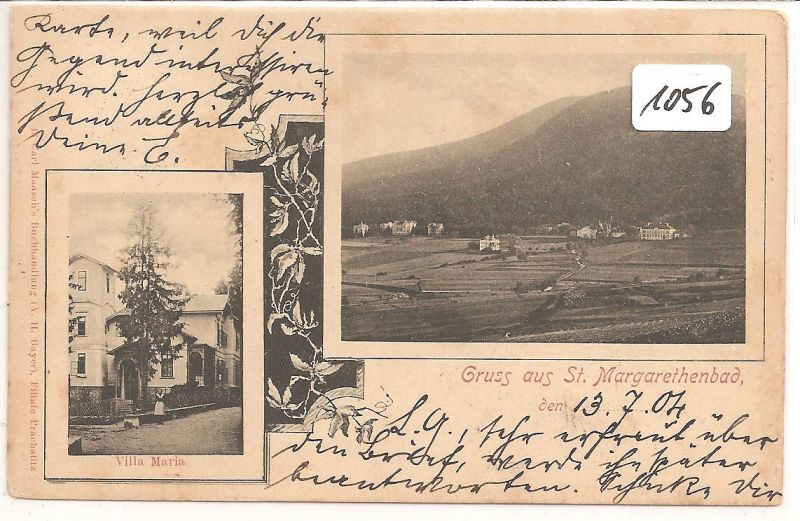 Karte, weil Dich die
Gegend interessiren
wird. Herzlich grü-
ßend allseits
Deine E.
1056
Carl Maasch's Buchhandlung (A. H. Bayer), Filiale Prachatitz
Villa Maria
Gruss aus St. Margarethenbad,
den 13.7.04
L. G., sehr erfreut über
den Brief, werde ihn später
beantworten. Schicke Dir